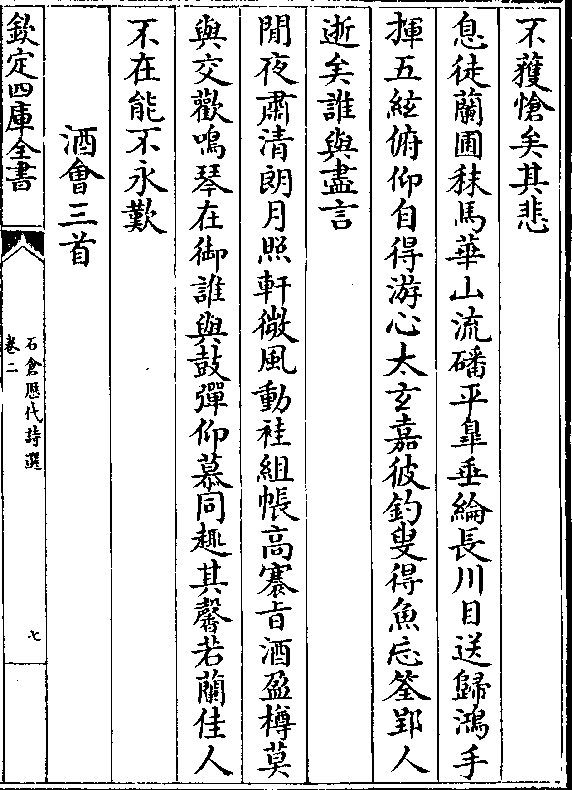 不獲愴矣其悲
息徒蘭圃秣馬華山流磻平臯垂綸長川目送歸鴻手
揮五絃俯仰自得游心太玄嘉彼釣叟得魚忘筌郢人
逝矣誰與盡言
閒夜肅清朗月照軒微風動袿組帳高褰旨酒盈樽莫
與交歡鳴琴在御誰與鼓彈仰慕同趣其馨若蘭佳人
不在能不永歎
酒會三首
欽定四庫全書
石倉歷代詩選
卷二
七